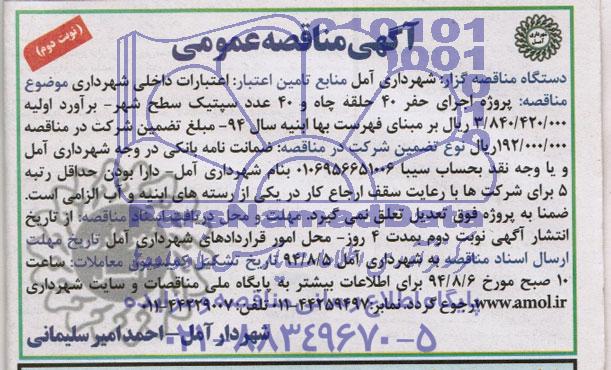 آگهی مناقصه عمومی
(نوبت دوم)
شهرداری آمل
دستگاه مناقصه گزار: شهرداری آمل منابع تامین اعتبار: اعتبارات داخلی شهرداری موضوع
مناقصه: پروژه اجرای حفر ۴۰ حلقه چاه و ۴۰ عدد سپتیک سطح شهر- برآورد اولیه
۳/۸۴۰/۴۲۰/۰۰۰ ریال بر مبنای فهرست بها ابنیه سال ۹۴- مبلغ تضمین شرکت در مناقصه
۱۹۲/۰۰۰/۰۰۰ریال نوع تضمین شرکت در مناقصه: ضمانت نامه بانکی در وجه شهرداری آمل
و یا وجه نقد بحساب سیبا ۰۱۰۶۹۵۶۶۵۱۰۰۶ بنام شهرداری آمل- دارا بودن حداقل رتبه
۵ برای شرکت ها با رعایت سقف ارجاع کار در یکی از رسته های ابنیه و آب الزامی است.
ضمنا به پروژه فوق تعدیل تعلق نمی گیرد. مهلت و محل دریافت اسناد مناقصه: از تاریخ
انتشار آگهی نوبت دوم بمدت ۴ روز- محل امور قراردادهای شهرداری آمل تاریخ مهلت
ارسال اسناد مناقصه به شهرداری آمل ۹۴/۸/۵ تاریخ تشکیل کمیسیون معاملات: ساعت
۱۰ صبح مورخ ۹۴/۸/۶ برای اطلاعات بیشتر به پایگاه ملی مناقصات و سایت شهرداری
www.amol.ir رجوع گردد. نمابر: ۴۴۲۵۹۴۹۷-۰۱۱ تلفن: ۴۴۲۲۹۰۰۷-۰۱۱
شهردار آمل - احمد امیر سلیمانی
ParsNamadData
پایگاه اطلاع رسانی مناقصه و مزایده
۰۲۱-۸۸۳۴۹۶۷۰-۵